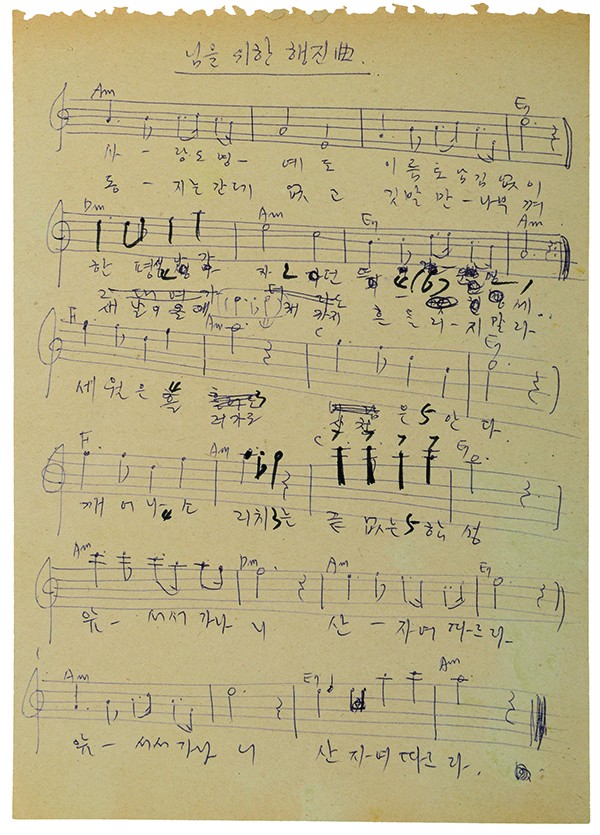 님을 위한 행진曲.
Am E7
사 - 랑도 명 - 예 도 이름 도 남김 없이
동 - 지는 간데 없 고 깃발 만 - 나부 껴
Dm Am E7 Am
한 평생
새 날이 올 때 까지 흔 들리 - 지 말라..
F Am C E7
세 월은 흘 러가도 산천 은 안 다.
F Am C E7
깨 어나 소 리치는 끝 없는 함 성
Am Dm Am E7
앞 - 서서 가나 니 산 - 자여 따르라.
Am E7 Am
앞 - 서서 가나 니 산 자여 따르 라.